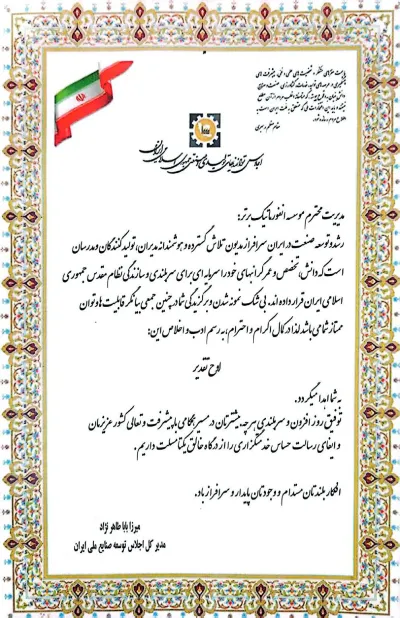 مقام معظم رهبری
مدیریت محترم موسسه انفورماتیک برتر:
رشد و توسعه صنعت در ایران سرافراز مدیون تلاش گسترده و هوشمندانه مدیران، تولیدکنندگان و مدرسان
است که دانش، تخصص و عمر گرانبهای خود را سرمایه ای برای سربلندی و سازندگی نظام مقدس جمهوری
اسلامی ایران قرار داده اند. بی شک نمونه شدن و برگزیدگی شما در چنین جمعی بیانگر قابلیت ها و توان
ممتاز شما می باشد لذا در کمال اکرام و احترام، به رسم ادب و اخلاص این:
لوح تقدیر
به شما اهدا میگردد.
توفیق روز افزون و سربلندی هر چه بیشترتان در مسیر همگامی با پیشرفت و تعالی کشور عزیزمان
و ایفای رسالت حساس خدمتگزاری را از درگاه خالق یکتا مسئلت داریم.
افکار بلندتان مستدام و وجودتان پایدار و سرافراز باد.
میرزا بابا طاهر نژاد
مدیر کل اجلاس توسعه صنایع ملی ایران